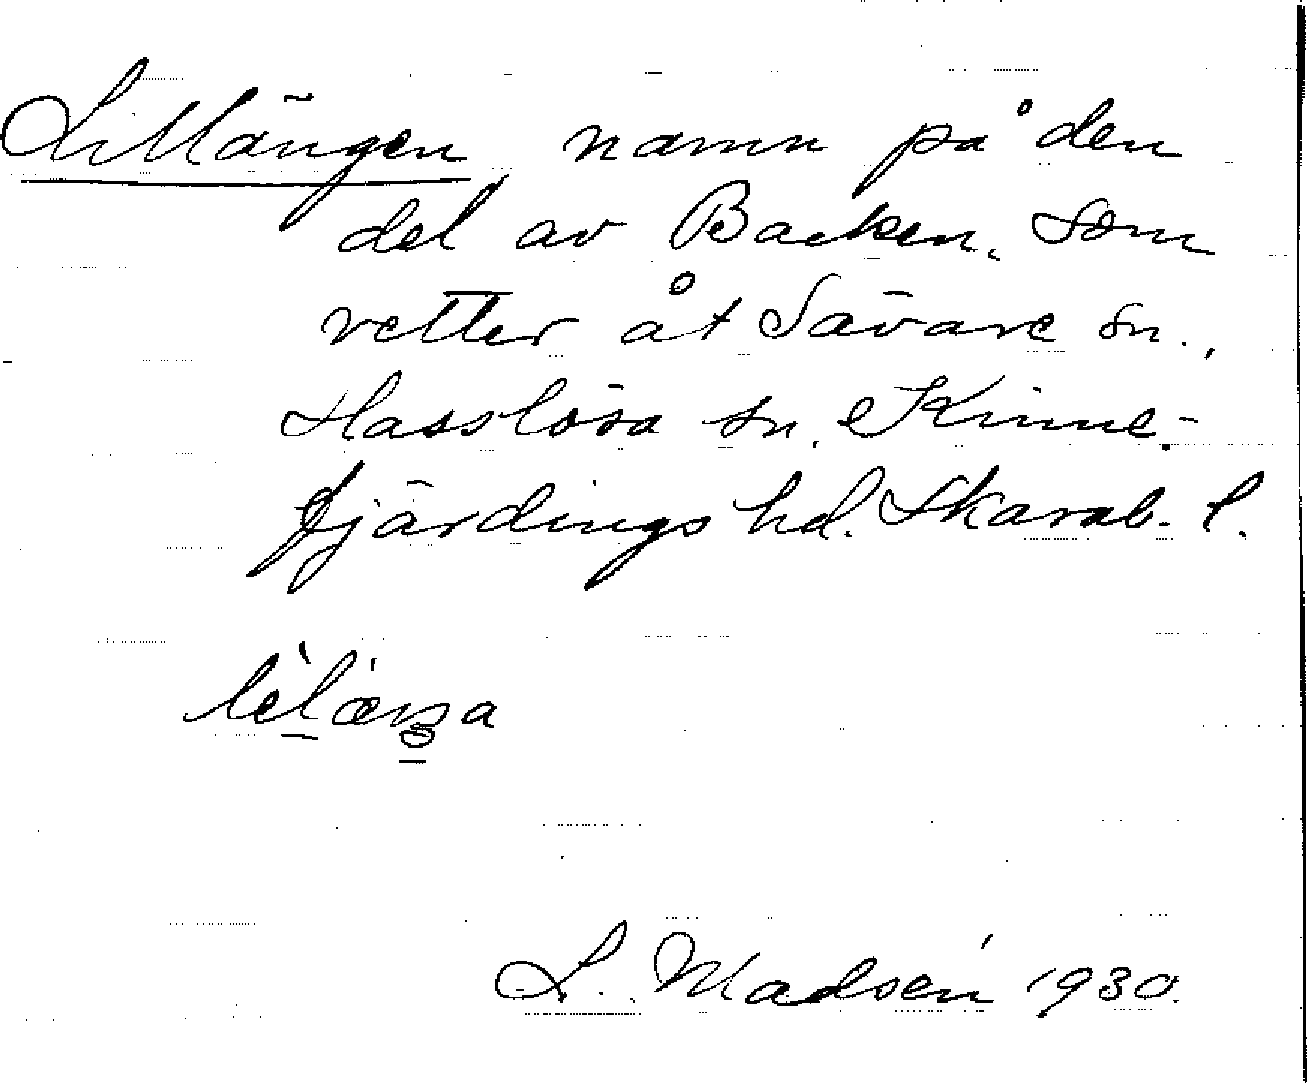 Lillängen, namn på den
del av Backen, som
vetter åt Sävare sn.,
Hasslösa sn, Kinne-
fjärdings hd. Skarab. l.
L. Madsén 1930.